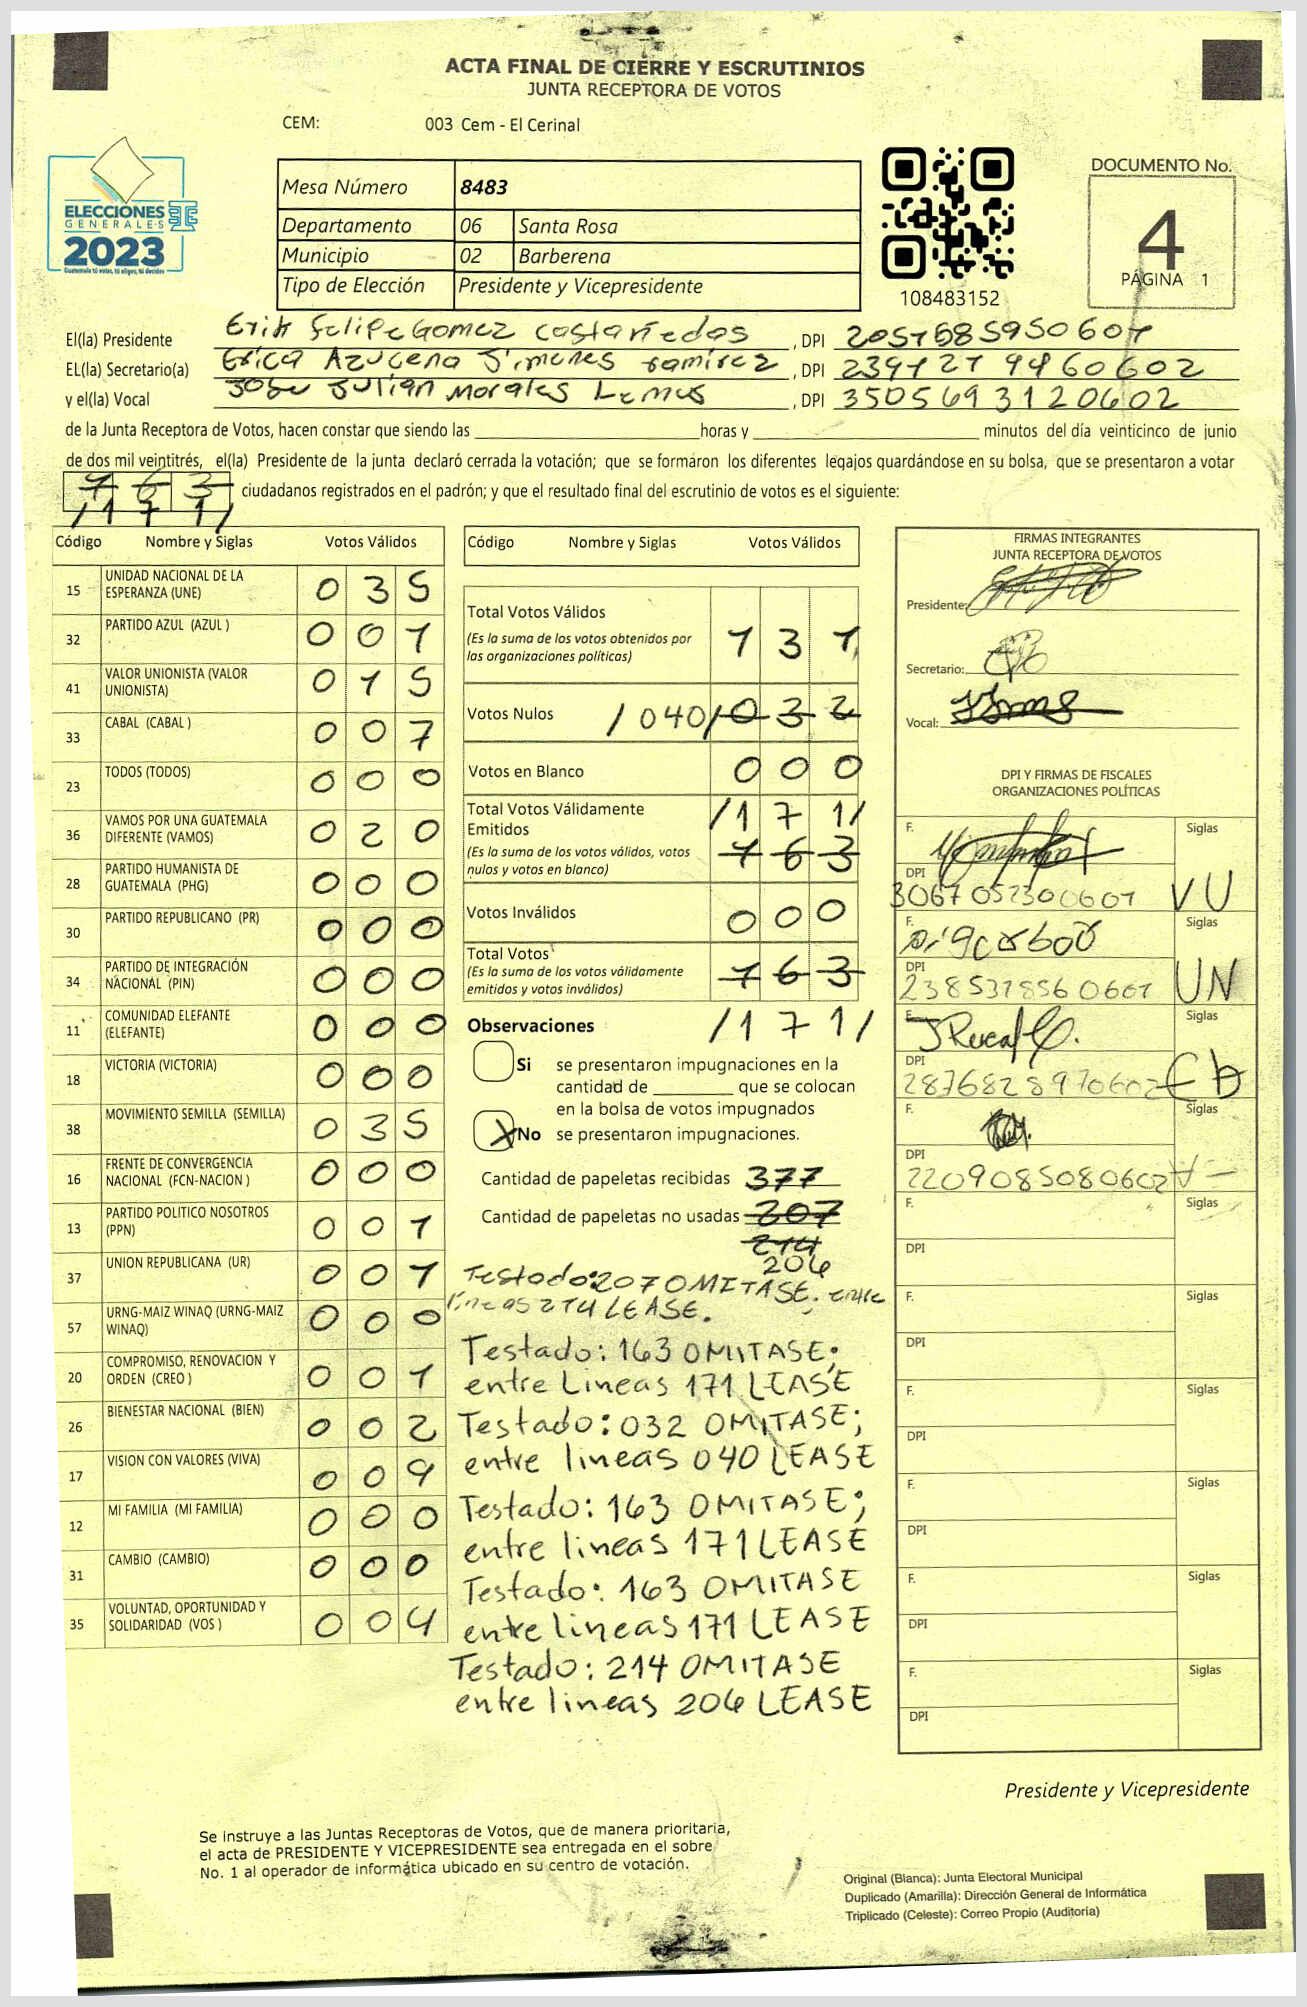 ACTA FINAL DE CIERRE Y ESCRUTINIOS
JUNTA RECEPTORA DE VOTOS
CEM: 003 Cem - El Cerinal
ELECCIONES
GENERALES
2023
Guatemala tú votas, tú eliges, tú decides
Mesa Número 8483
Departamento 06 Santa Rosa
Municipio 02 Barberena
Tipo de Elección Presidente y Vicepresidente
108483152
DOCUMENTO No.
4
PÁGINA 1
El(la) Presidente Erik Felipe Gomez Castañedas, DPI 2057585950607
EL(la) Secretario(a) Erica Azucena Jimenes ramirez, DPI 2391279460602
y el(la) Vocal Jose Julian Morales Lemus, DPI 3505693120602
de la Junta Receptora de Votos, hacen constar que siendo las horas y minutos del día veinticinco de junio
de dos mil veintitrés, el(la) Presidente de la junta declaró cerrada la votación; que se formaron los diferentes legajos guardándose en su bolsa, que se presentaron a votar
163 ciudadanos registrados en el padrón; y que el resultado final del escrutinio de votos es el siguiente:
/171/
Código Nombre y Siglas Votos Válidos
15 UNIDAD NACIONAL DE LA ESPERANZA (UNE) 035
32 PARTIDO AZUL (AZUL ) 001
41 VALOR UNIONISTA (VALOR UNIONISTA) 015
33 CABAL (CABAL ) 007
23 TODOS (TODOS) 000
36 VAMOS POR UNA GUATEMALA DIFERENTE (VAMOS) 020
28 PARTIDO HUMANISTA DE GUATEMALA (PHG) 000
30 PARTIDO REPUBLICANO (PR) 000
34 PARTIDO DE INTEGRACIÓN NACIONAL (PIN) 000
11 COMUNIDAD ELEFANTE (ELEFANTE) 000
18 VICTORIA (VICTORIA) 000
38 MOVIMIENTO SEMILLA (SEMILLA) 035
16 FRENTE DE CONVERGENCIA NACIONAL (FCN-NACION ) 000
13 PARTIDO POLITICO NOSOTROS (PPN) 001
37 UNION REPUBLICANA (UR) 001
57 URNG-MAIZ WINAQ (URNG-MAIZ WINAQ) 000
20 COMPROMISO, RENOVACION Y ORDEN (CREO ) 001
26 BIENESTAR NACIONAL (BIEN) 002
17 VISION CON VALORES (VIVA) 009
12 MI FAMILIA (MI FAMILIA) 000
31 CAMBIO (CAMBIO) 000
35 VOLUNTAD, OPORTUNIDAD Y SOLIDARIDAD (VOS ) 004
Código Nombre y Siglas Votos Válidos
Total Votos Válidos 131
(Es la suma de los votos obtenidos por
las organizaciones políticas)
Votos Nulos /040/ 032
Votos en Blanco 000
Total Votos Válidamente /171/
Emitidos
(Es la suma de los votos válidos, votos 163
nulos y votos en blanco)
Votos Inválidos 000
Total Votos
(Es la suma de los votos válidamente 163
emitidos y votos inválidos)
Observaciones /171/
Si se presentaron impugnaciones en la
cantidad de que se colocan
en la bolsa de votos impugnados
X No se presentaron impugnaciones.
Cantidad de papeletas recibidas 377
Cantidad de papeletas no usadas 207
214
206
Testado: 207 OMITASE. entre
lineas 214 LEASE.
Testado: 163 OMITASE;
entre Lineas 171 LEASE
Testado: 032 OMITASE;
entre lineas 040 LEASE
Testado: 163 OMITASE;
entre lineas 171 LEASE
Testado: 163 OMITASE
entre lineas 171 LEASE
Testado: 214 OMITASE
entre lineas 206 LEASE
FIRMAS INTEGRANTES
JUNTA RECEPTORA DE VOTOS
Presidente:
Secretario:
Vocal:
DPI Y FIRMAS DE FISCALES
ORGANIZACIONES POLÍTICAS
F. Siglas
DPI
3067052300601 VU
F. Siglas
DPI
2385378560601 UN
F. Siglas
DPI
2876828970602
F. Siglas
DPI
2209085080602
F. Siglas
DPI
F. Siglas
DPI
F. Siglas
DPI
F. Siglas
DPI
F. Siglas
DPI
F. Siglas
DPI
Presidente y Vicepresidente
Se instruye a las Juntas Receptoras de Votos, que de manera prioritaria,
el acta de PRESIDENTE Y VICEPRESIDENTE sea entregada en el sobre
No. 1 al operador de informática ubicado en su centro de votación.
Original (Blanca): Junta Electoral Municipal
Duplicado (Amarilla): Dirección General de Informática
Triplicado (Celeste): Correo Propio (Auditoria)